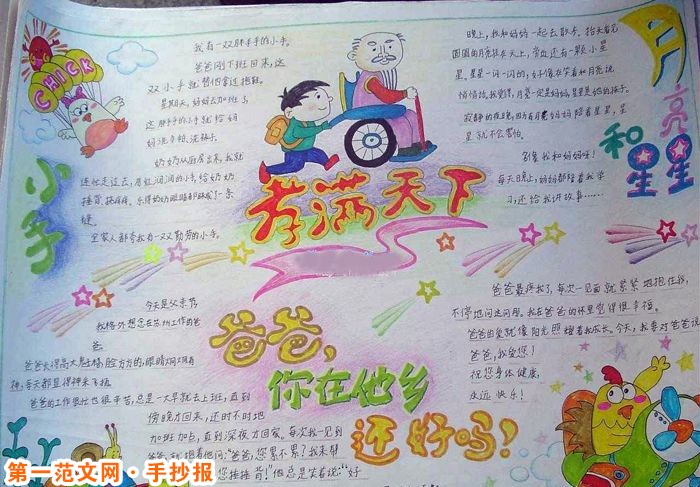 CHICK
小手
我有一双胖乎乎的小手。
爸爸刚下班回来，这
双小手就替他拿过拖鞋。
星期天，妈妈去加班了，
这胖乎乎的小手就给妈
妈洗手帕、洗袜子。
奶奶从厨房出来，我就
连忙走过去，用红润润的小手给奶奶
捶背、揉疼痛，乐得奶奶眼睛都眯成了一条
缝。
全家人都夸我有一双勤劳的小手。
月亮和星星
晚上，我和妈妈一起去散步。抬头看见
圆圆的月亮挂在天上，旁边还有一颗小星
星。星星一闪一闪的，好像在笑着和月亮说
悄悄话。我觉得，月亮一定是妈妈，星星是她的孩子。
寂静的夜晚，因为有月亮妈妈陪着星星，星
星就不会害怕。
就像我和妈妈呀！
每天晚上，妈妈都陪着我学
习，还给我讲故事……
孝满天下
爸爸，
你在他乡
还好吗！
今天是父亲节
我格外想念在苏州工作的爸
爸。
爸爸长得高大魁梧，脸方方的，眼睛炯炯有
神，每天都显得神采飞扬。
爸爸的工作繁忙也很辛苦，总是一大早就去上班，直到
傍晚才回来，还时不时地
加班加点，直到深夜才回家。每次我一见到
爸爸就抱着他问：“爸爸，您累不累？我来帮
您捶捶背！”但总是笑着说：“好
爸爸最疼我了，每次一见面就紧紧地抱住我，
不停地问这问那。我在爸爸的怀里觉得很幸福。
爸爸的爱就像阳光照耀着我成长。今天，我要对爸爸说
爸爸，我爱您！
祝您身体健康，
永远快乐！
第一范文网·手抄报